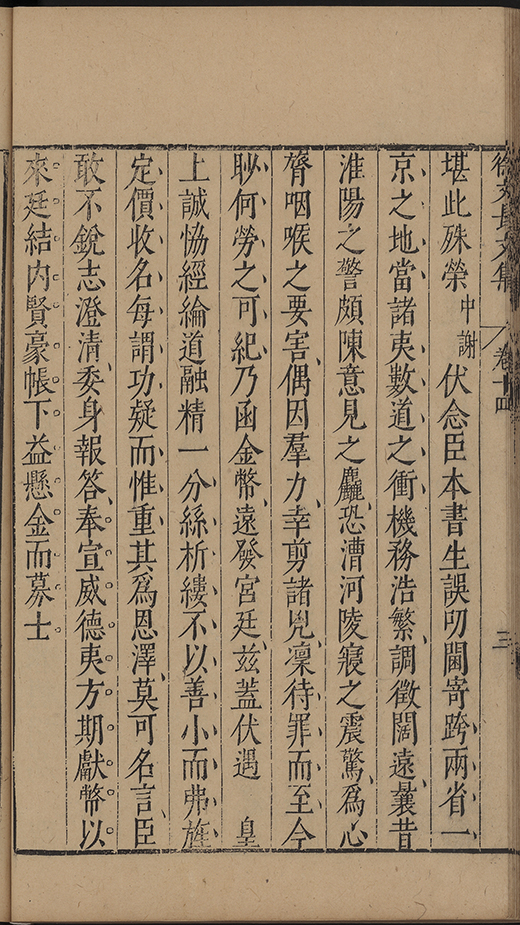 徐文長文集 卷十四 三
堪此殊榮中謝伏念臣本書生誤叨閫寄跨兩省一
京之地當諸夷數道之衝機務浩繁調徵闊遠曩昔
淮陽之警頗陳意見之麤恐漕河陵寢之震驚爲心
膂咽喉之要害偶因羣力幸剪諸兇凜待罪而至今
眇何勞之可紀乃函金幣遠發宮廷茲蓋伏遇 皇
上誠恊經綸道融精一分絲析縷不以善小而弗旌
定價收名每謂功疑而惟重其爲恩澤莫可名言臣
敢不銳志澄清委身報答奉宣威德夷方期獻幣以
來廷結內賢豪帳下益懸金而募士